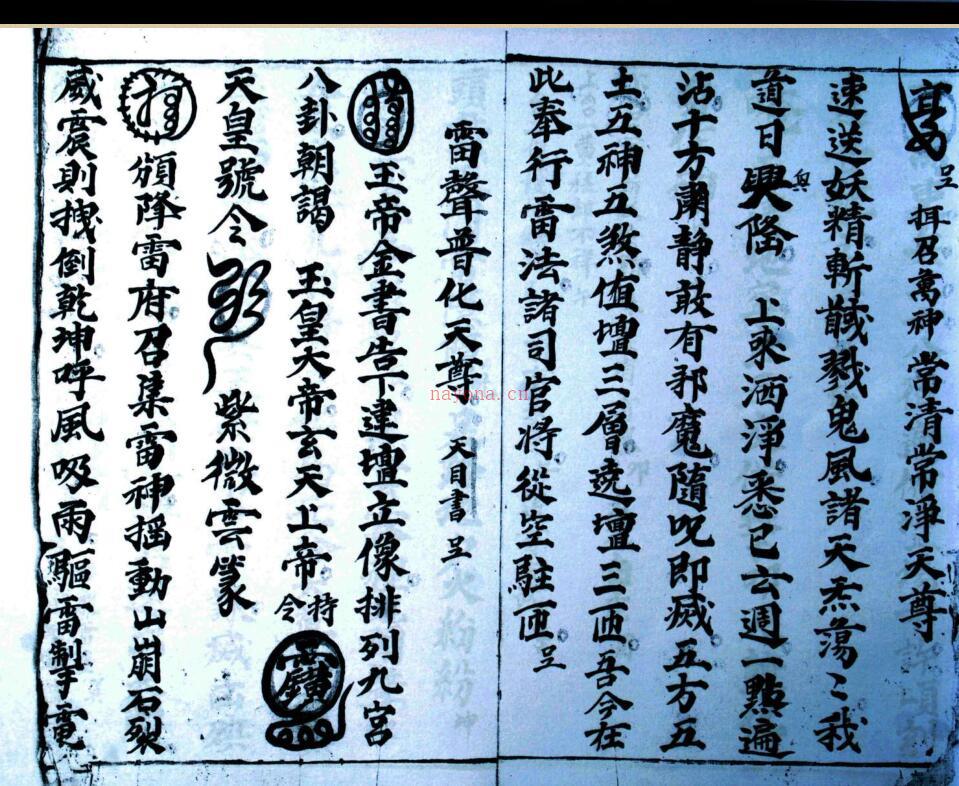 呈 揖召萬神 常清常淨天尊
速送妖精斬馘戮鬼風諸天炁蕩〻我
道日興隆 上來洒淨悉已云週一點遍
沾十方肅靜敢有邪魔隨咒即滅五方五
土五神五煞值壇三層遶壇三匝吾今在
此奉行雷法諸司官將從空駐匝 呈
雷聲普化天尊 天目書 呈
玉帝金書告下建壇立像排列九宮
八卦朝謁 玉皇大帝玄天上帝 持令
天皇號令 紫微雲篆
頒降雷府召集雷神摇動山崩石裂
威震則拽倒乾坤呼風吸雨驅雷掣電
nayona.cn